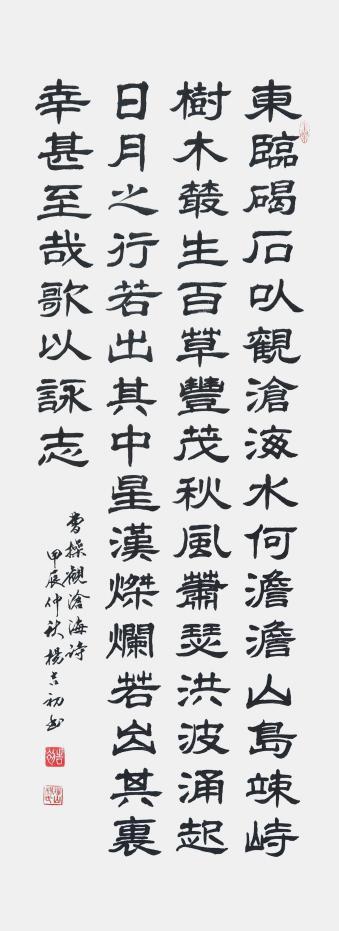 東臨碣石以觀滄海水何澹澹山島竦峙
樹木叢生百草豐茂秋風蕭瑟洪波涌起
日月之行若出其中星漢燦爛若出其裏
幸甚至哉歌以詠志
曹操觀滄海詩
甲辰仲秋楊吉初書